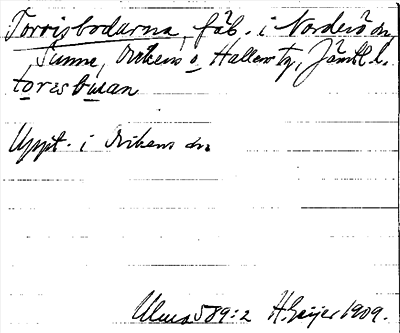 Torrisbodarna, fäb. i Norderö sn,
Sunne, Ovikens o. Hallens tg, Jämtl. l.
toresbuan
Uppt. i Ovikens sn.
Ulma 589:2 H. Geijer 1909.